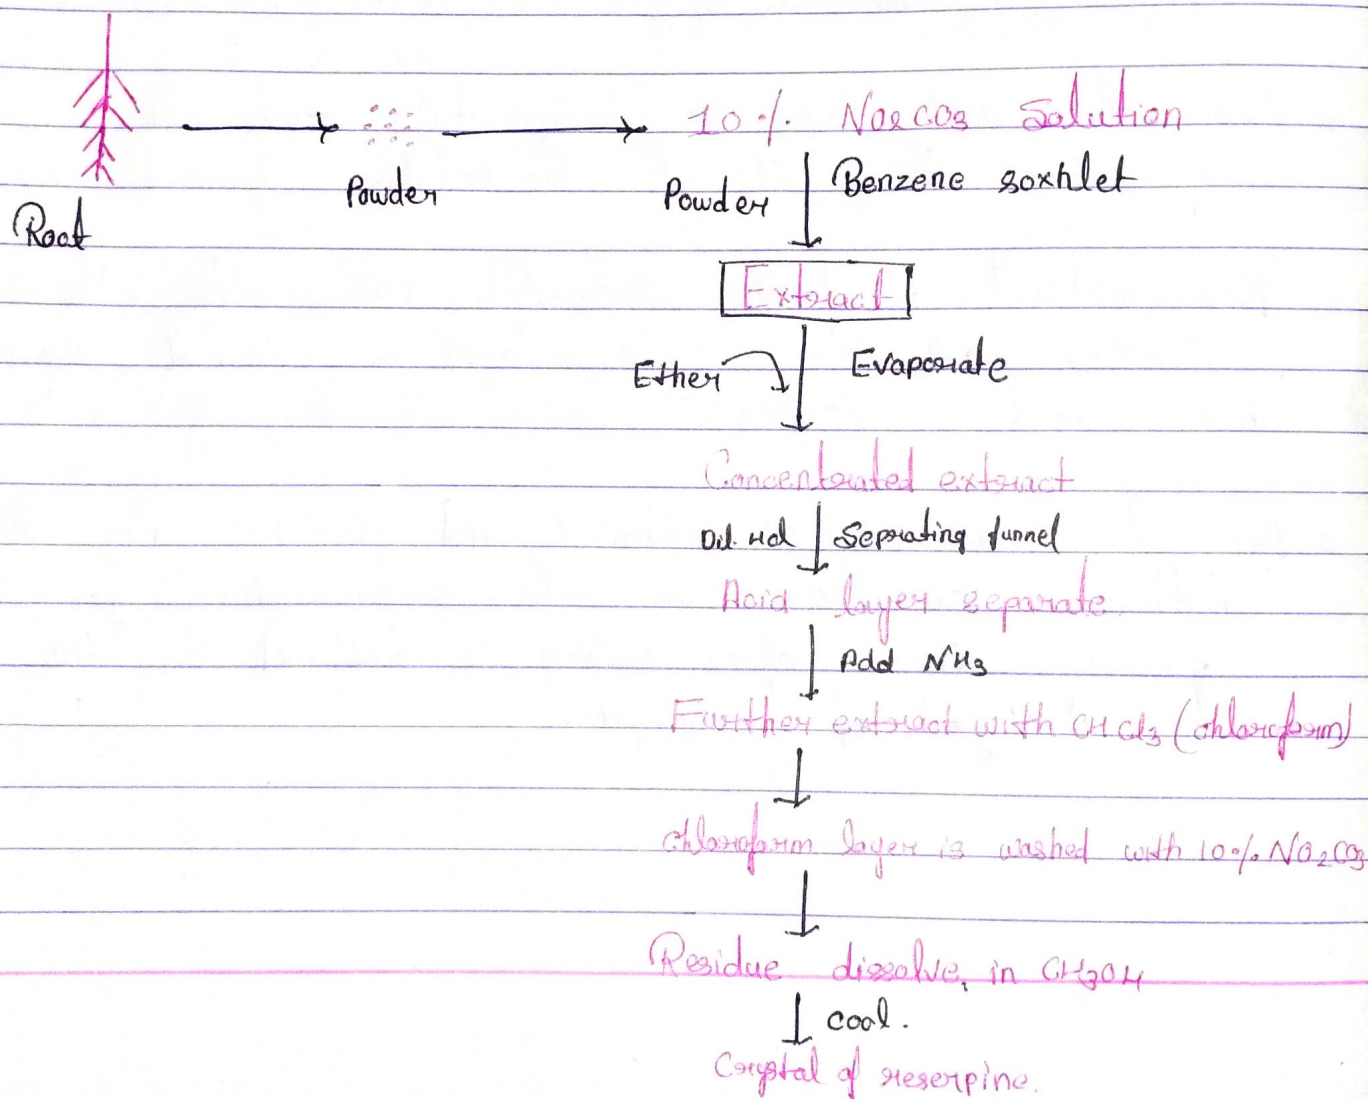 10 % Na2CO3 Solution
Root
Powder
Powder
Benzene soxhlet
Extract
Ether
Evaporate
Concentrated extract
Dil. Hcl
Seprating funnel
Acid layer separate
Add NH3
Further extract with CHCl3 (chloroform)
Chloroform layer is washed with 10% Na2CO3
Residue dissolve, in CH3OH
cool.
Crystal of reserpine.